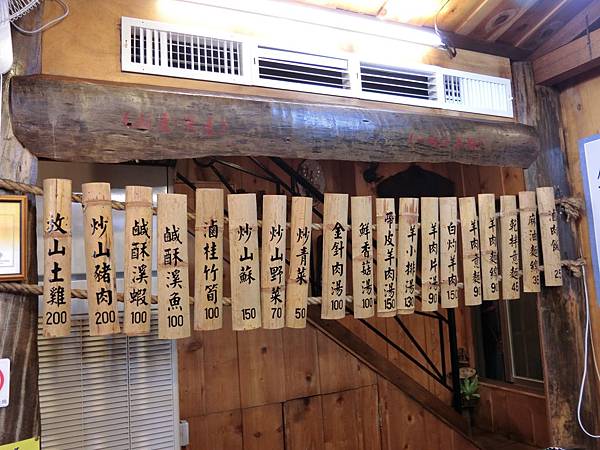 放山土雞 200
炒山豬肉 200
鹹酥溪蝦 100
鹹酥溪魚 100
滷桂竹筍 100
炒山蘇 150
炒山野菜 70
炒青菜 50
金針肉湯 100
鮮香菇湯 100
帶皮羊肉湯 150
羊小排湯 130
羊肉片湯 90
白炒羊肉 150
羊肉麵 90
羊肉麵線 90
乾拌麵 45
麻油麵線 35
滷肉飯 25